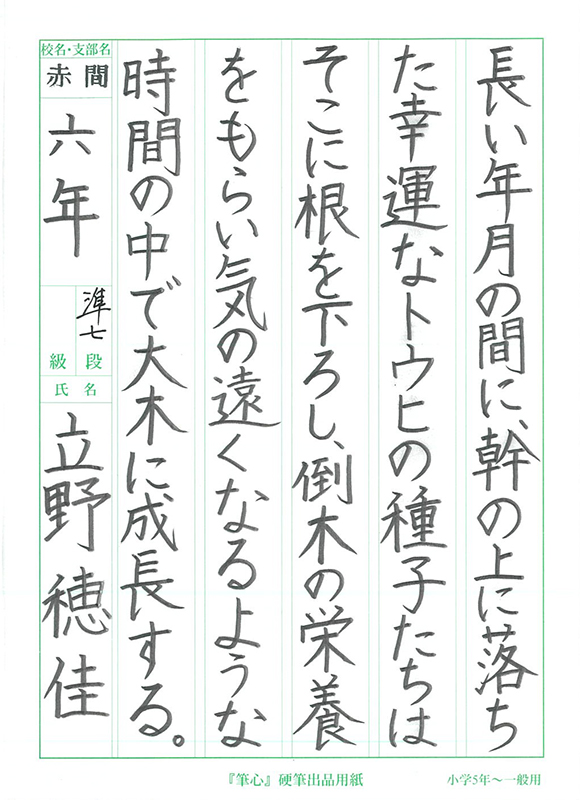 長い年月の間に、幹の上に落ち
た幸運なトウヒの種子たちは
そこに根を下ろし、倒木の栄養
をもらい気の遠くなるような
時間の中で大木に成長する。
校名・支部名
赤間
六年
準七
段
級
氏名
立野穂佳
『筆心』硬筆出品用紙
小学5年〜一般用